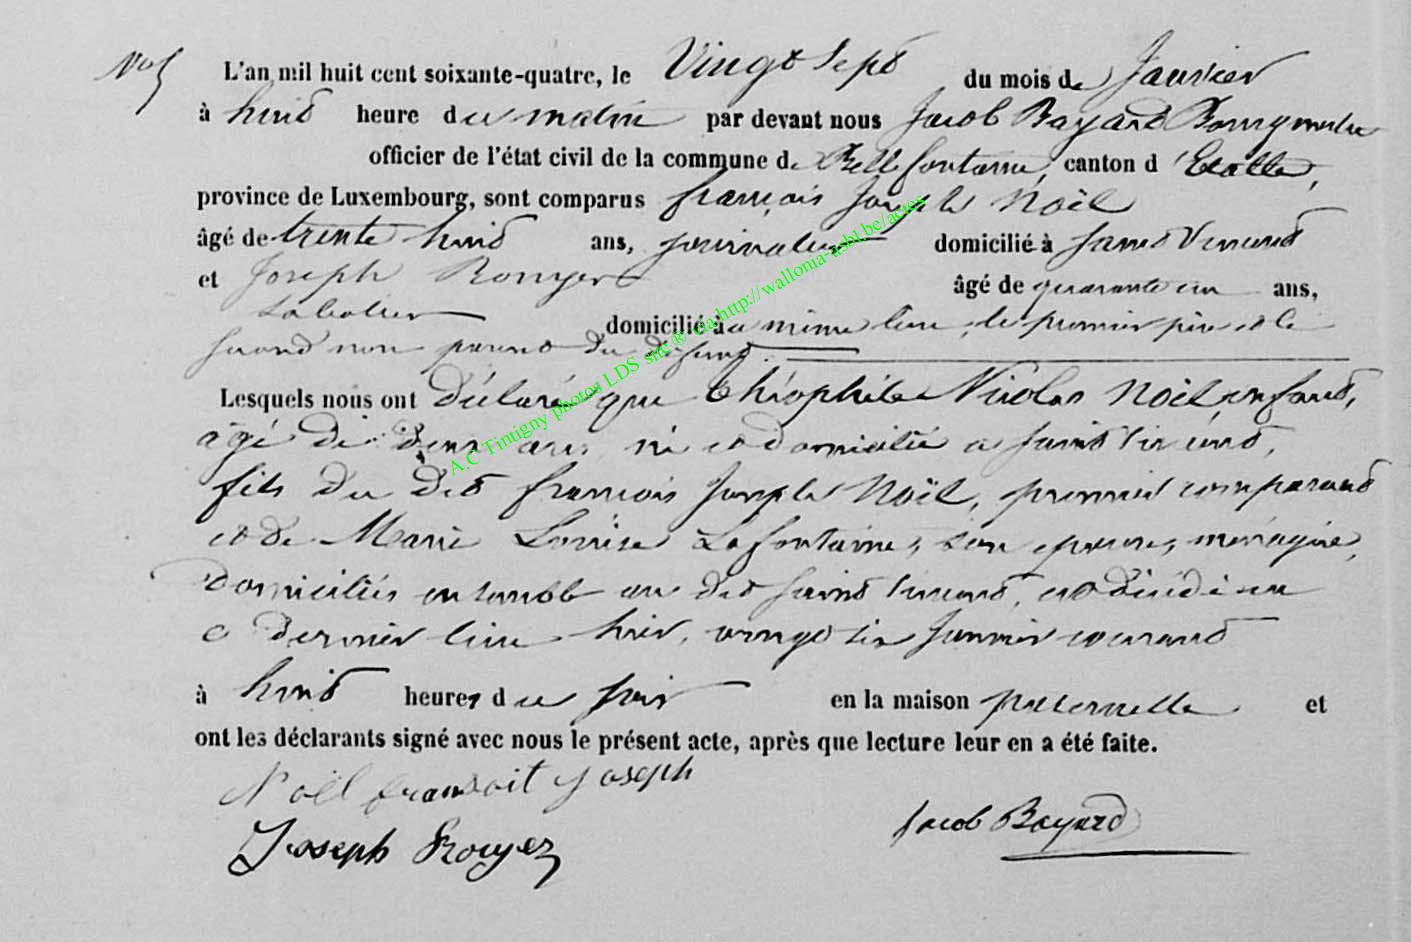 No 5
L'an mil huit cent soixante-quatre, le Vingt Sept du mois de Janvier
à huit heure du matin par devant nous Jacob Bayard Bourgmestre
officier de l'état civil de la commune de Bellefontaine, canton d'Etalle,
province de Luxembourg, sont comparus françois Joseph Noël
âgé de trente huit ans, journalier domicilié à Saint Vincent
et Joseph Rouyer âgé de quarante un ans,
domicilié à même lieu, le premier père et le
second non parent du défunt.
Lesquels nous ont Déclaré que Théophile Nicolas Noël, enfant,
âgé de deux ans, né et domicilié à Saint Vincent,
fils du dit françois Joseph Noël, premier comparant
et de Marie Louise Lafontaine, son épouse, ménagère,
domiciliés ensemble au dit Saint Vincent, est décédé en
ce dernier lieu hier, vingt six Janvier courant
à huit heures du soir en la maison paternelle et
ont les déclarants signé avec nous le présent acte, après que lecture leur en a été faite.
Noël fransoit Joseph
Jacob Bayard
Joseph Rouyer
A.C Tintigny photos LDS snc ® via http://wallonia-asbl.be/actes